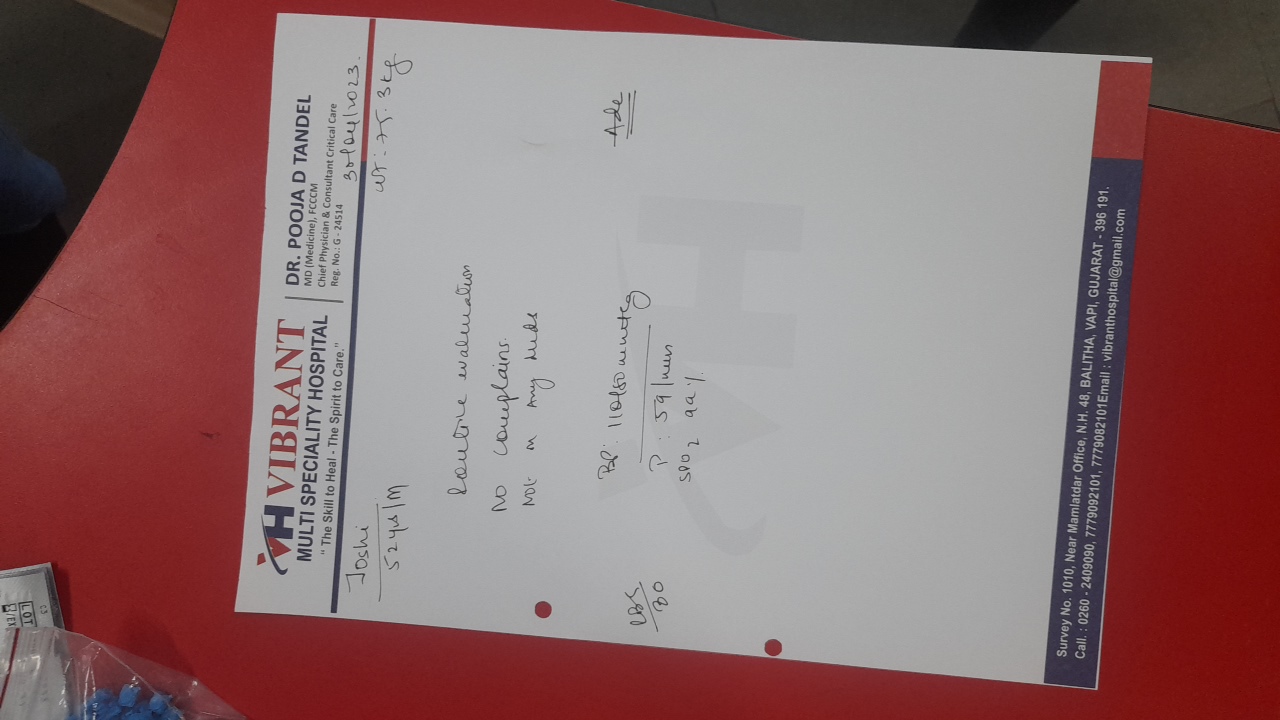 LOT
VH VIBRANT
MULTI SPECIALITY HOSPITAL
" The Skill to Heal - The Spirit to Care."
DR. POOJA D TANDEL
MD (Medicine), FCCCM
Chief Physician & Consultant Critical Care
Reg. No.: G - 24514
30/04/2023.
Joshi
52yrs/M
wt: 75.3kg
Routine evaluation
NO complains.
Not on any meds
BP: 110/80 mmHg
Adv
RBS
P: 59/min
SPO2 99%
VH
Survey No. 1010, Near Mamlatdar Office, N.H. 48, BALITHA, VAPI, GUJARAT - 396 191.
Call. : 0260 - 2409090, 7779092101, 7779082101Email : vibranthospital@gmail.com